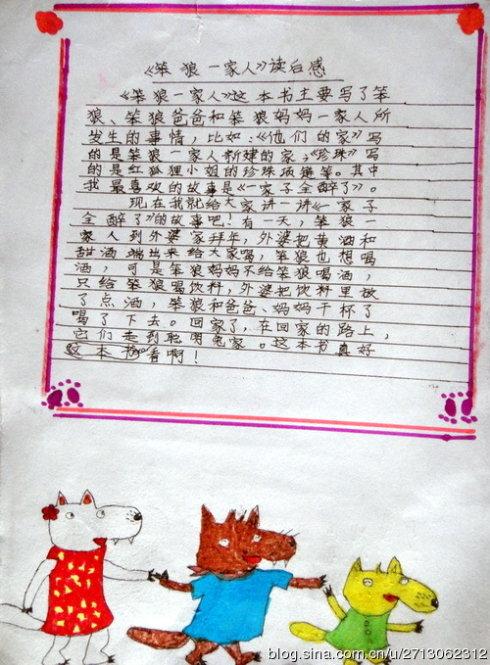 《笨狼一家人》读后感
《笨狼一家人》这本书主要写了笨
狼、笨狼爸爸和笨狼妈妈一家人所
发生的事情，比如:《他们的家》写
的是笨狼一家人新建的家，《珍珠》写
的是红狐狸小姐的珍珠项链等。其中
我最喜欢的故事是《一家子全醉了》。
现在我就给大家讲一讲《一家子
全醉了》的故事吧！有一天，笨狼一
家人到外婆家拜年，外婆把黄酒和
甜酒端出来给大家喝，笨狼也想喝
酒，可是笨狼妈妈不给笨狼喝酒，
只给笨狼喝饮料，外婆把饮料里放
了点酒，笨狼和爸爸、妈妈干杯了
喝了下去。回家了，在回家的路上，
它们走到聪明兔家。这本书真好
这本书看啊！
blog.sina.com.cn/u/2713062312